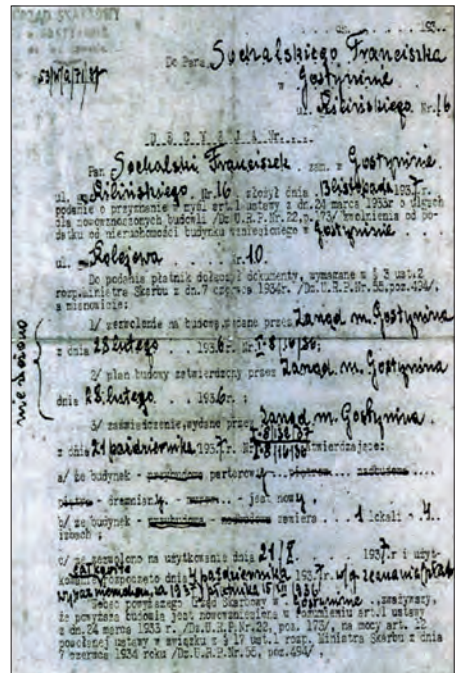 URZĄD SKARBOWY
193...
Do Pana Sochalskiego Franciszka
w Gostyninie
ul. Kilińskiego Nr. 16
DECYZJA Nr....
Pan Sochalski Franciszek . zam. w Gostyninie.
ul. Kilińskiego . Nr 16 . złożył dnia 13 listopada 1937 r.
podanie o przyznanie w myśl art. 1 ustawy z dn. 24 marca 1933r o ulgach
dla nowowznoszonych budowli /Dz.U.R.P.Nr.22,p.173/ zwolnienia od po-
datku od nieruchomości budynku wzniesionego w Gostyninie
ul. Kolejowa . . . Nr. 10.
Do podania płatnik dołączył dokumenty, wymagane w § 3 ust.2
rozp.ministra Skarbu z dn.7 czerwca 1934r. /Dz.U.R.P.Nr.55,poz.494/,
a mianowicie:
1/ zezwolenie na budowę, wydane przez Zarząd m. Gostynina
z dnia 28 lutego . . . 1936 r. Nr I-8/16/36;
2/ plan budowy zatwierdzony przez Zarząd m. Gostynina
dnia 28 lutego . . . 1936 r. ;
3/ zaświadczenie, wydane przez Zarząd m. Gostynina.
z dnia 21 października 1937 r. Nr I-8/16/36 stwierdzające:
a/ że budynek - parterowy
drewniany. - jest nowy.
b/ że budynek - zawiera . . 1 lokali - 4
izbach ;
c/ że zezwolono na użytkowanie dnia 21/X . . . 1937 r i użyt-
kowanie rozpoczęto dnia 4 października 1937 r. w/g zeznania
Wobec powyższego Urząd Skarbowy w . Gostyninie . zważywszy,
że powyższa budowla jest nowowzniesiona w rozumieniu art.1 ustawy
z dn.24 marca 1933 r. /Dz.U.R.P.Nr.22, poz. 173/, na mocy art. 12
powołanej ustawy w związku z § 17 ust.1 rozp. Ministra Skarbu z dnia
7 czerwca 1934 roku /Dz.U.R.P.Nr.55, poz.494/,